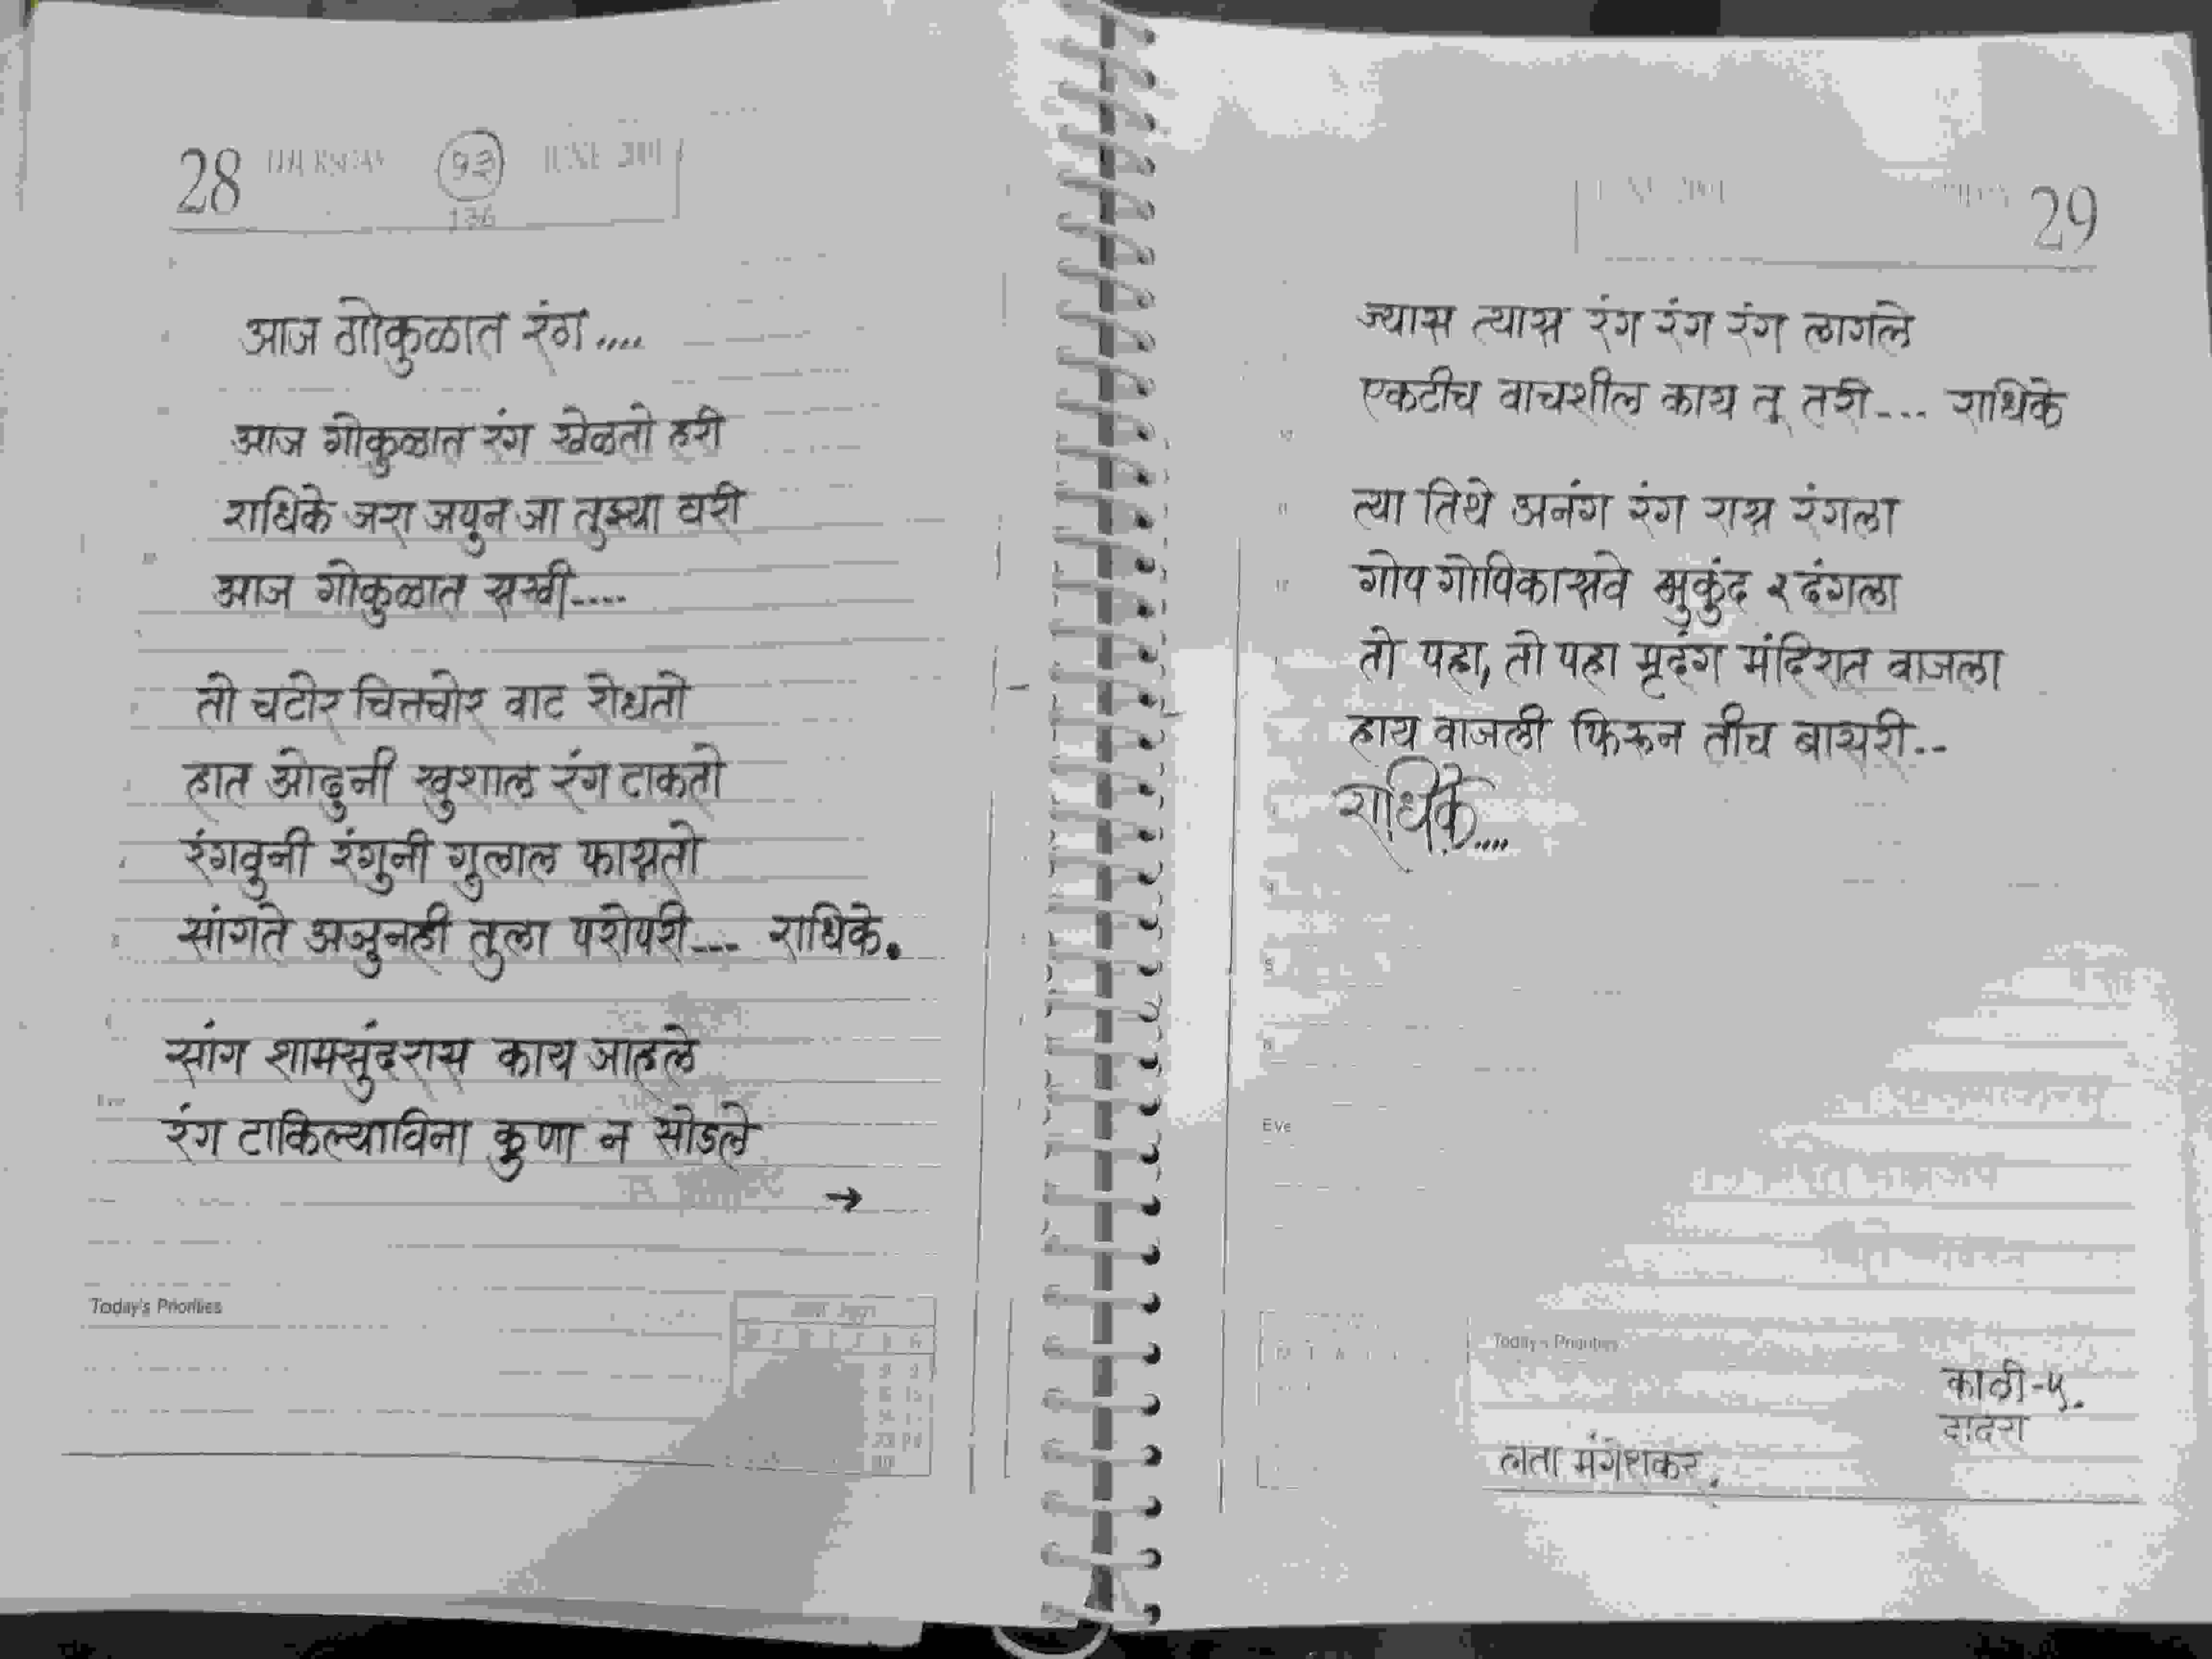 28 THURSDAY १३ JUNE 2001
136
आज गोकुळात रंग....
आज गोकुळात रंग खेळतो हरी
राधिके जरा जपुन जा तुझ्या घरी
आज गोकुळात सखी----
तो चटोर चित्तचोर वाट रोधतो
हात ओढुनी खुशाल रंग टाकतो
रंगवुनी रंगुनी गुलाल फासतो
सांगते अजुनही तुला परोपरी--- राधिके.
सांग शामसुंदरास काय जाहले
रंग टाकिल्याविना कुणा न सोडले
→
Today's Priorities
29
ज्यास त्यास रंग रंग रंग लागले
एकटीच वाचशील काय तू तरी--- राधिके
त्या तिथे अनंग रंग रास रंगला
गोप गोपिकासवे मुकुंद २ दंगला
तो पहा, तो पहा मृदंग मंदिरात वाजला
हाय वाजली फिरून तीच बासरी--
राधिके....
Eve
Today's Priorities
काळी-५.
दादरा
लता मंगेशकर.